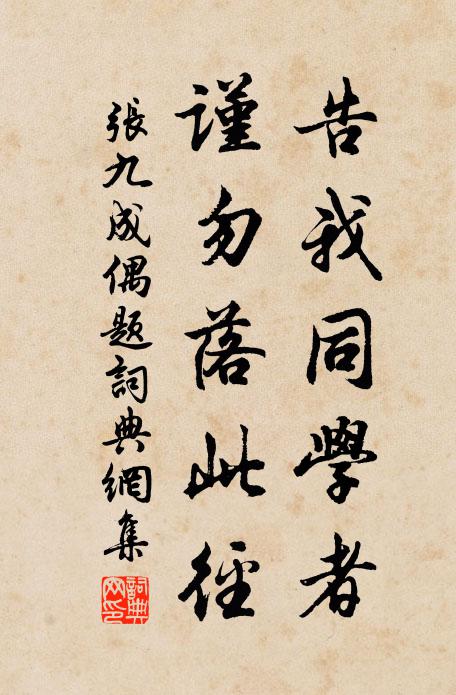 告我同學者
謹勿落此徑
張九成偶題詞典網集
詞典網印